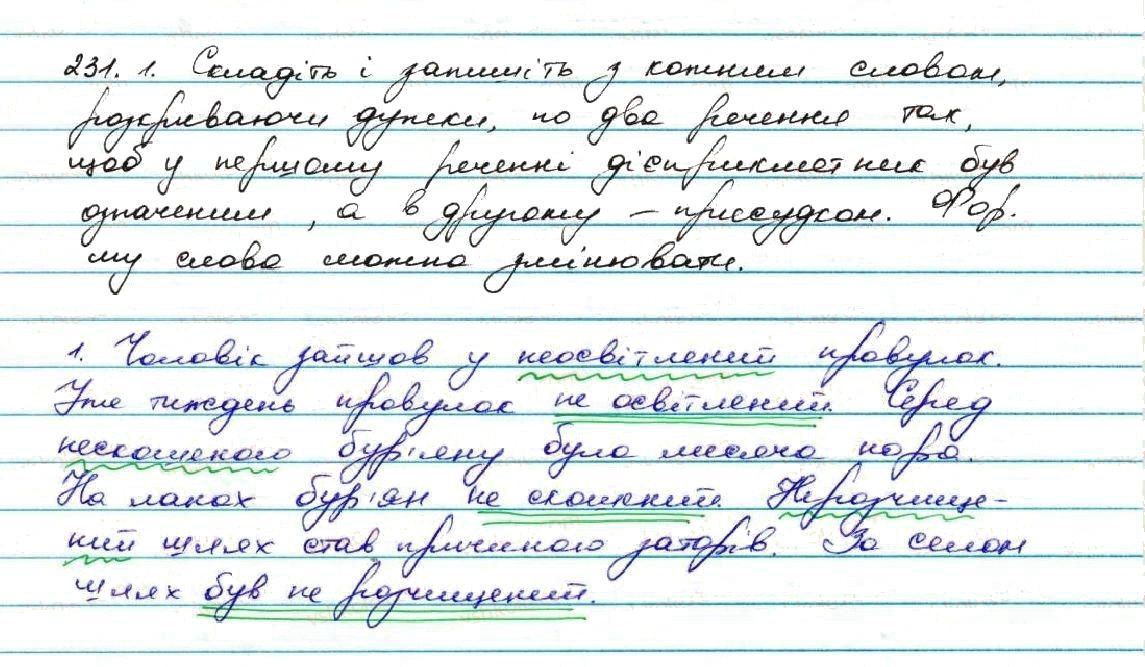 231. 1. Складіть і запишіть з кожним словом,
розкриваючи дужки, по два речення так,
щоб у першому реченні дієприкметник був
означенням, а в другому – присудком. Фор-
му слова можна змінювати.
1. Чоловік зайшов у неосвітлений провулок.
Уже тиждень провулок не освітлений. Серед
нескошеного бур'яну була лисяча нора.
На ланах бур'ян не скошений. Нерозчище-
ний шлях став причиною заторів. За селом
шлях був не розчищений.